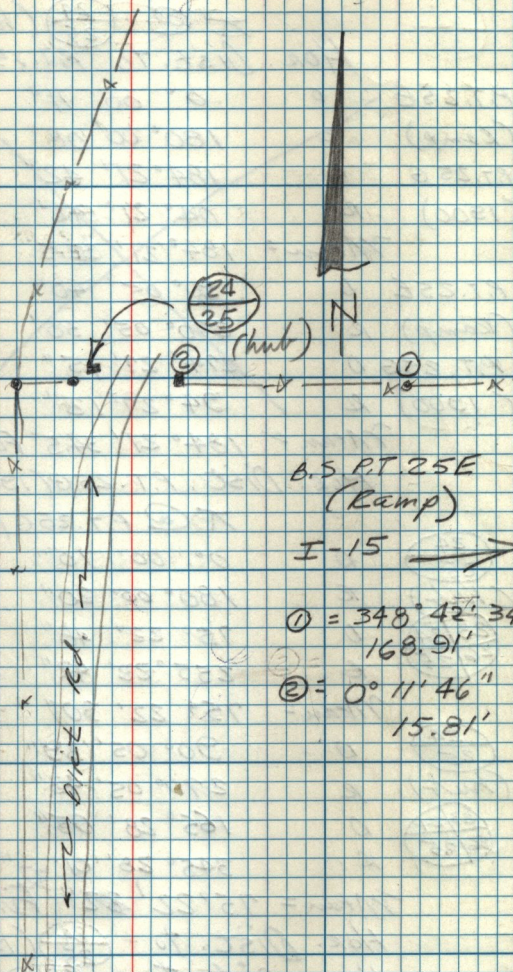 24
25
② (hub)
N
①
B.S P.T. 25E
(Ramp)
I-15
① = 348° 42' 34
168.91'
② = 0° 11' 46"
15.81'
Dirt Rd.